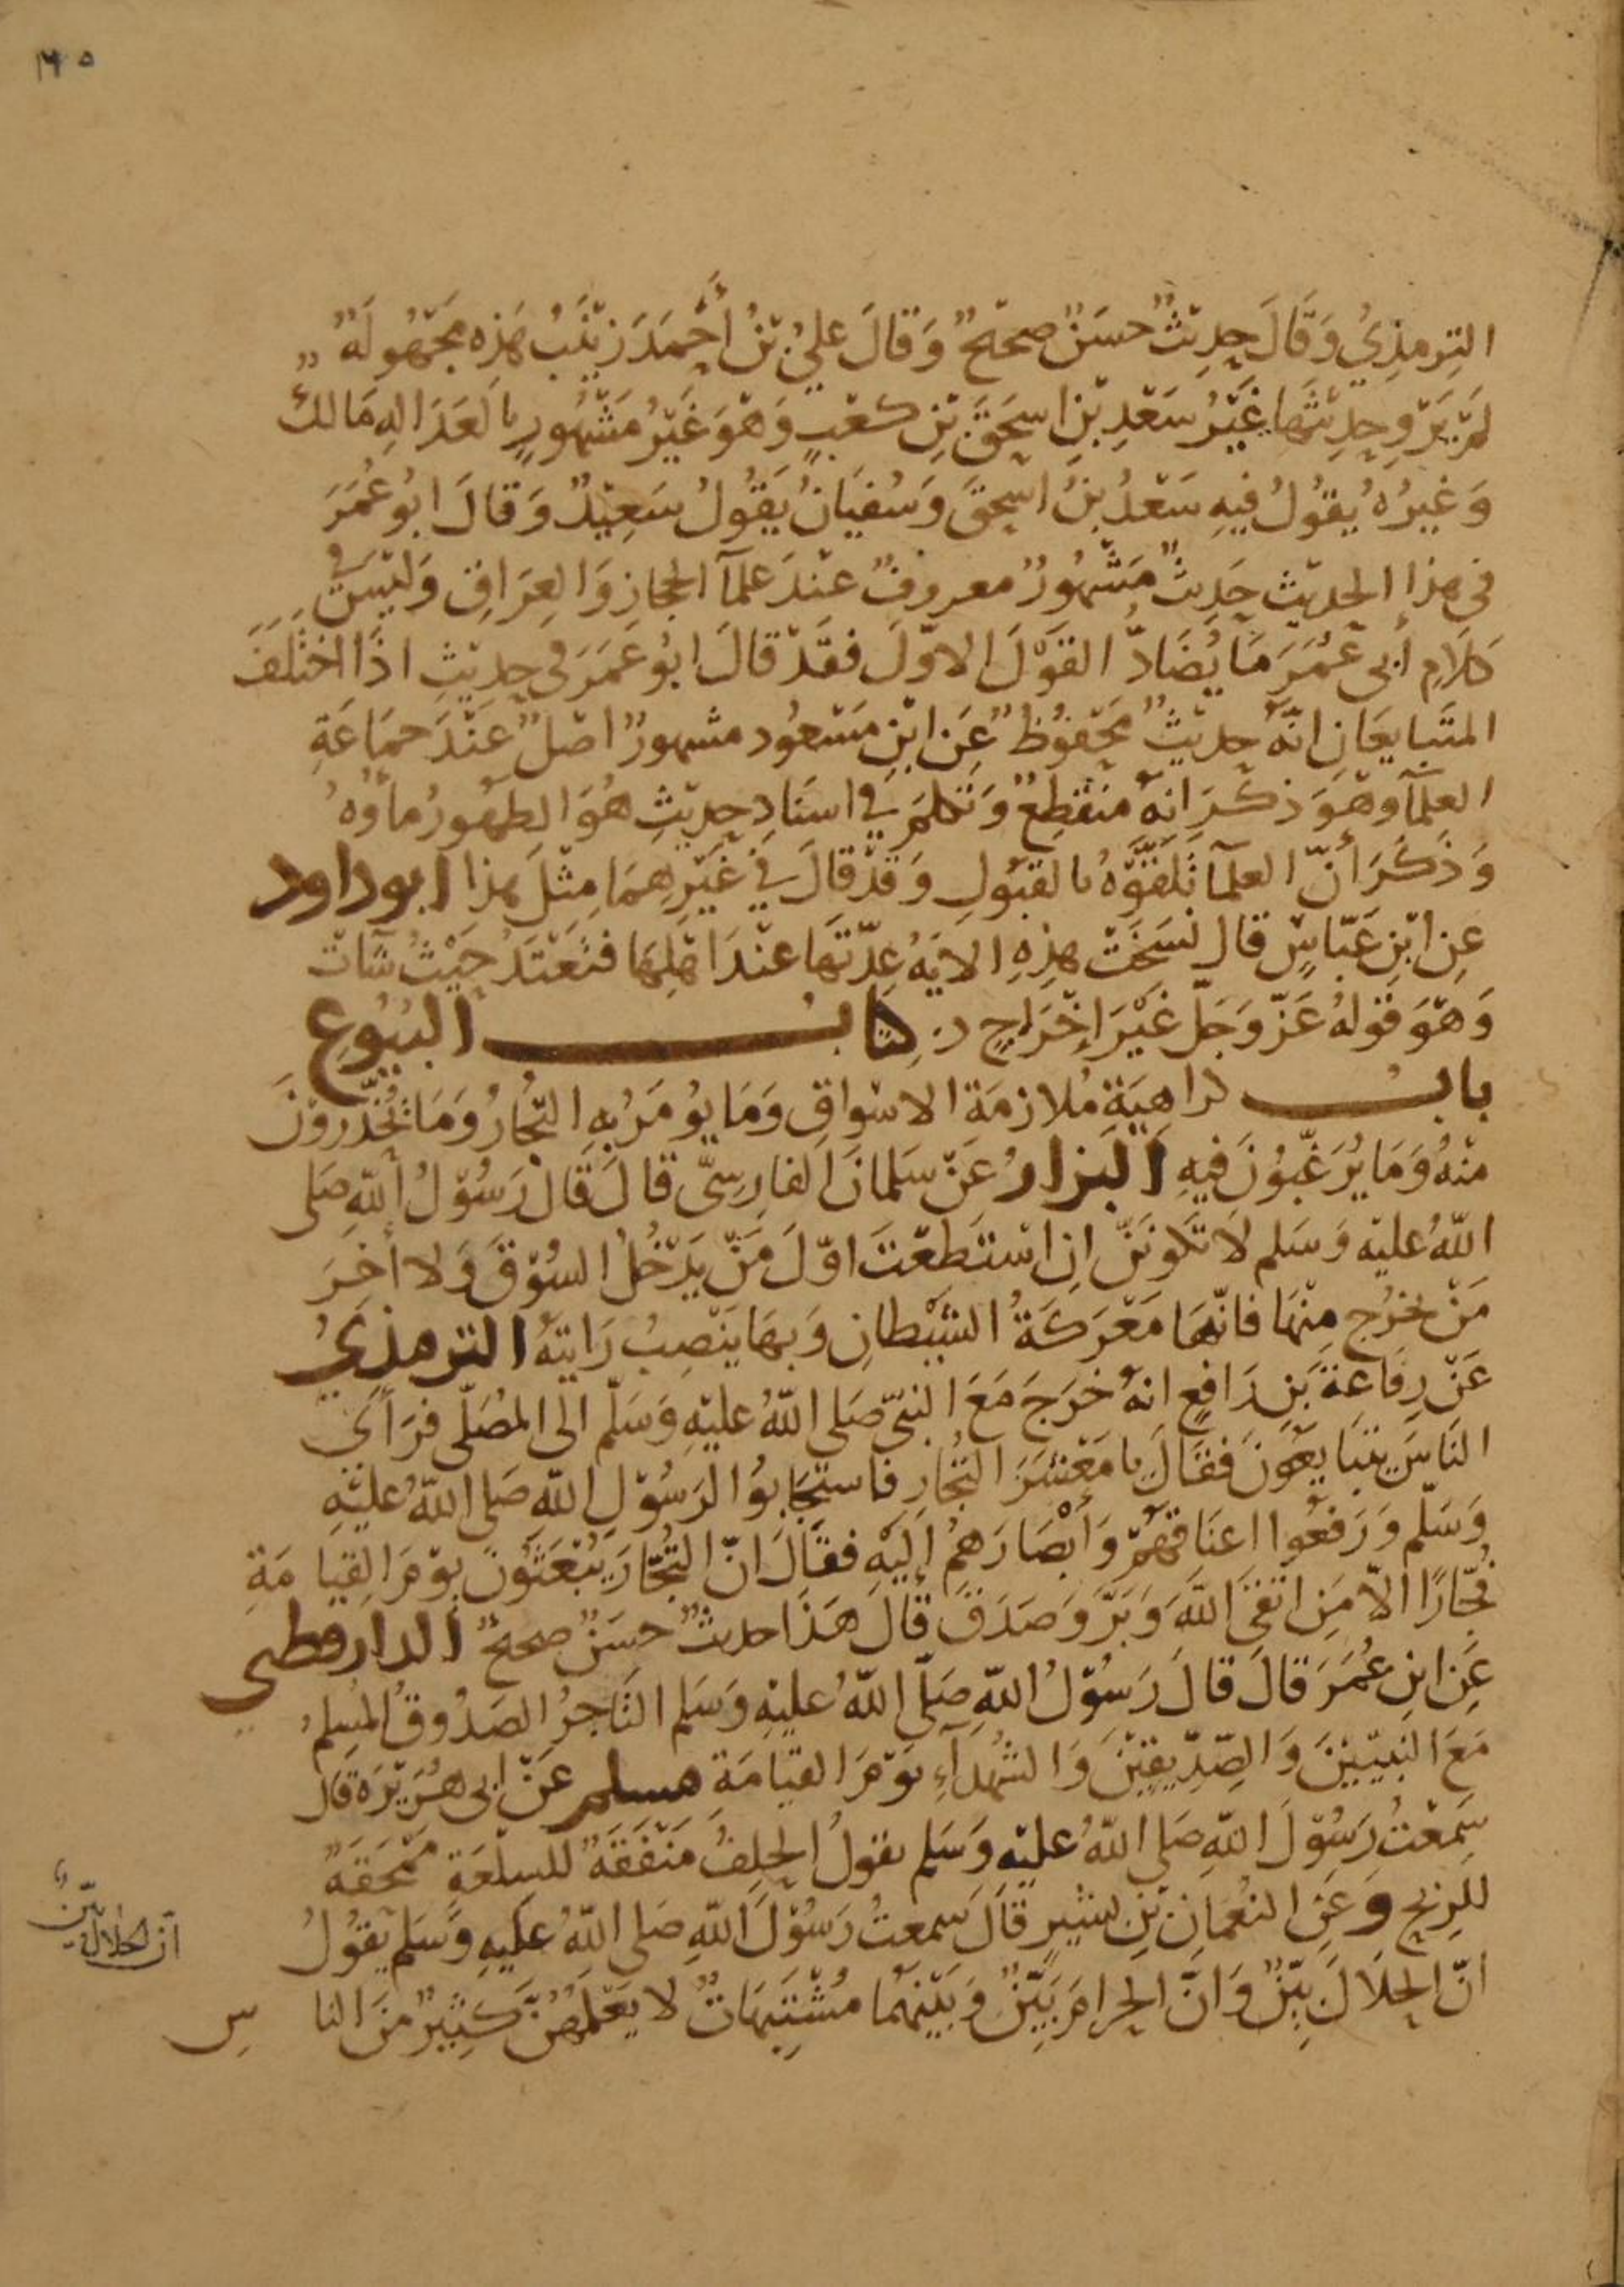 التِرمذِيُ وَقَالَ حَدِيثٌ حسَنٌ صحيحٌ وَقالَ عليُ بْنُ أَحْمدَ زيْنَبُ هَذه مَجْهُولَةٌ
لَمْ يَرْوِ حدِيثَها غَيْرُ سَعْدِ بْنِ اسحَقَ بْنِ كعْبٍ وَهْوَ غَيْرُ مَشْهُورٍ بالعَدَالهِ مَالكٌ
وَغيرُهُ يقُولُ فيهِ سَعْدُ بنُ اسحقَ وَسُفيَانُ يَقُولُ سَعِيْدٌ وَقالَ ابُو عُمَرَ
في هذا الحديْث حَدِيثٌ مَشْهُورٌ معروفٌ عنْدَ علمآ الحجازِ وَالعِرَاقِ وَليْسَ في
كلَامِ أبى عُمَرَ مَا يُضَادُّ القَوْلَ الاوّلَ فقَدْ قالَ ابُو عُمَرَ في حدِيْثِ اذَا اختَلفَ
المتَبايعَانِ انّهُ حديْثٌ مَحْفوُظٌ عَنِ ابْنِ مَسْعوُد مشهورٌ اصْلٌ عنْدَ جمَاعَةِ
العلمآ وهْوَ ذكَرَ انهُ منقطِعٌ وَتَكلمَ في اسنَادِ حدِيْثِ هُوَ الطهُورُ ماؤهُ
وَذكَرَ أنّ العلمآ تَلَقّوْهُ بالقبُولِ وَقدْ قالَ في غَيْرِهِمَا مِثْلَ هذا ابو داود
عنِ ابْنِ عَبّاسٍ قال نسَخَتْ هذِهِ الايَهُ عِدّتَهَا عنْدَ اهْلِهَا فتَعْتَدُ حَيْثُ شآتْ
وَهْوَ قوْلهُ عَزّ وَجَلّ غَيْرَ إخْرَاجٍ د. كتابُ البُيُوعِ
بابُ كراهِيَةِ مُلازمَة الاسْواقِ وَمَا يوُمَرُ بهِ التُجّارُ وَمَا يُحَذّروْنَ
منْهُ وَمَا يُرَغّبُوْنَ فيهِ البزارُ عَنْ سَلمانَ الفارِسِيّ قالَ قَالَ رَسُوْلُ اللّهِ صَلى
اللّهُ عليْه وَسَلم لَا تَكونَنّ انِ اسْتَطعْتَ اوّلَ مَنْ يَدْخُلُ السُوْقَ وَلا أخِرَ
مَنْ يخرُج مِنْهَا فانّهَا مَعْرَكَةُ الشيْطانِ وَبهَا يَنْصِبُ رَايَتهُ الترمذِيُ
عَنْ رِفَاعةَ بْنِ رَافعٍ انهُ خرَجَ مَعَ النبيّ صَلى اللّهُ عليْهِ وَسَلّم الَى المصَلّى فرَأَى
النَاسَ يتبَايعُوْنَ فقالَ يا مَعْشَرَ التُجّارِ فاستَجَابوُا لرَسُوْلِ اللّه صَلى اللّهُ عليْهِ
وَسَلّم وَرَفعُوا اعنَاقهُمْ وَأبْصَارَهمُ إلَيْهِ فقَالَ انّ التُجّارَ يُبْعَثُوْنَ يوْمَ القِيَامَةِ
فُجّارًا الاّ مَنِ اتقَىَ اللّهَ وَبَرَّ وَصَدَقَ قَالَ هَذَا حديثٌ حسَنٌ صحيحٌ الدارقطنى
عَنِ ابنِ عُمَرَ قالَ قالَ رَسُوْلُ اللّهِ صَلّى اللّهُ عليْهِ وَسَلم التَاجرُ الصَدُوقُ المُسِلمُ
مَعَ النبيّيْنَ وَالصِدّيقِيْنَ وَالشُهَدَآءِ يَوْمَ القيَامَةِ مسلم عَنْ ابى هُرَيْرَه قَال
سَمِعْتُ رَسُوْلَ اللّهِ صَلى اللّهُ عليْهِ وَسَلم يقولُ الحَلِفُ مَنْفَقَةٌ للسلْعَةِ مَمْحَقَةٌ
للرِبْحِ وَعَنِ النعْمَانِ بْنِ بشيْرٍ قَالَ سَمعتُ رَسُوْلَ اللّهِ صَلى اللّهُ عليْهِ وَسَلم يَقُولُ
انّ الحلَالَ بيّنٌ وَانّ الحرامَ بَيِّنٌ وَبَيْنهُمَا مُشْتَبِهَاتٌ لا يَعْلمُهُنّ كَثِيْرٌ منَ النا س
انّ الحلَالَ بيّنٌ